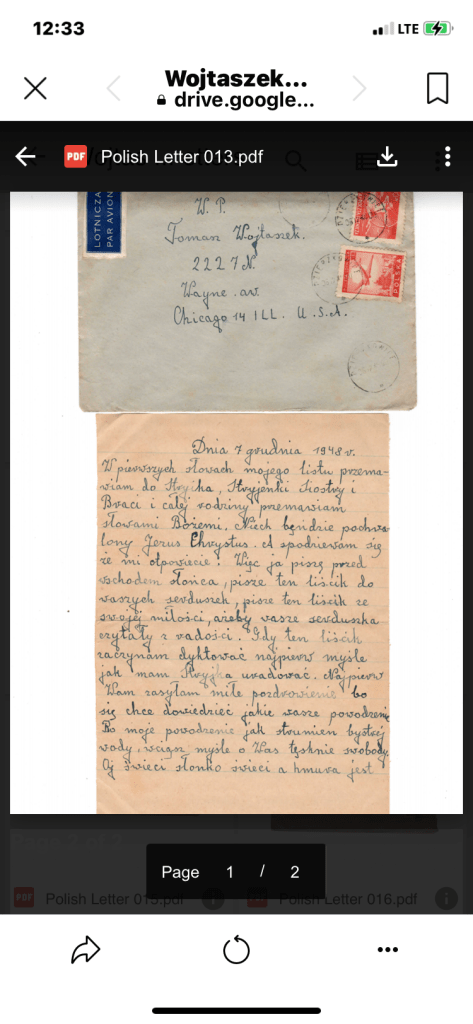 12:33
LTE
Wojtaszek...
drive.google...
PDF Polish Letter 013.pdf
LOTNICZA
PAR AVION
W. P.
Tomasz Wojtaszek.
2227 N.
Wayne. av.
Chicago 14 ILL. U.S.A.
POLSKA
Dnia 7 grudnia 1948 r.
W pierwszych słowach mojego listu przema-
wiam do Stryjka, Stryjenki Siostry i
Braci i całej rodziny przemawiam
słowami Bożemi. Niech będzie pochwa-
lony Jerus Chrystus. A spodniewam się
że mi otpowiecie. Więc ja piszę przed
wschodem słońca, pisze ten liścik do
waszych serduszek, pisze ten liścik ze
swojej miłości, ażeby wasze serduszka
czytały z radości. Gdy ten liścik
zaczynam dyktować najpierw myśle
jak mam Stryjka uradować. Najpierw
Wam zasyłam miłe pozdrowienie bo
się chce dowiedzieć jakie wasze powodzenie
Bo moje powodzenie jak strumien bystrej
wody, wciąsz myśle o Was tęsknie swobody.
Oj świeci słonko świeci a hmura jest
Page 1 / 2
PDF Polish Letter 015.pdf
PDF Polish Letter 016.pdf